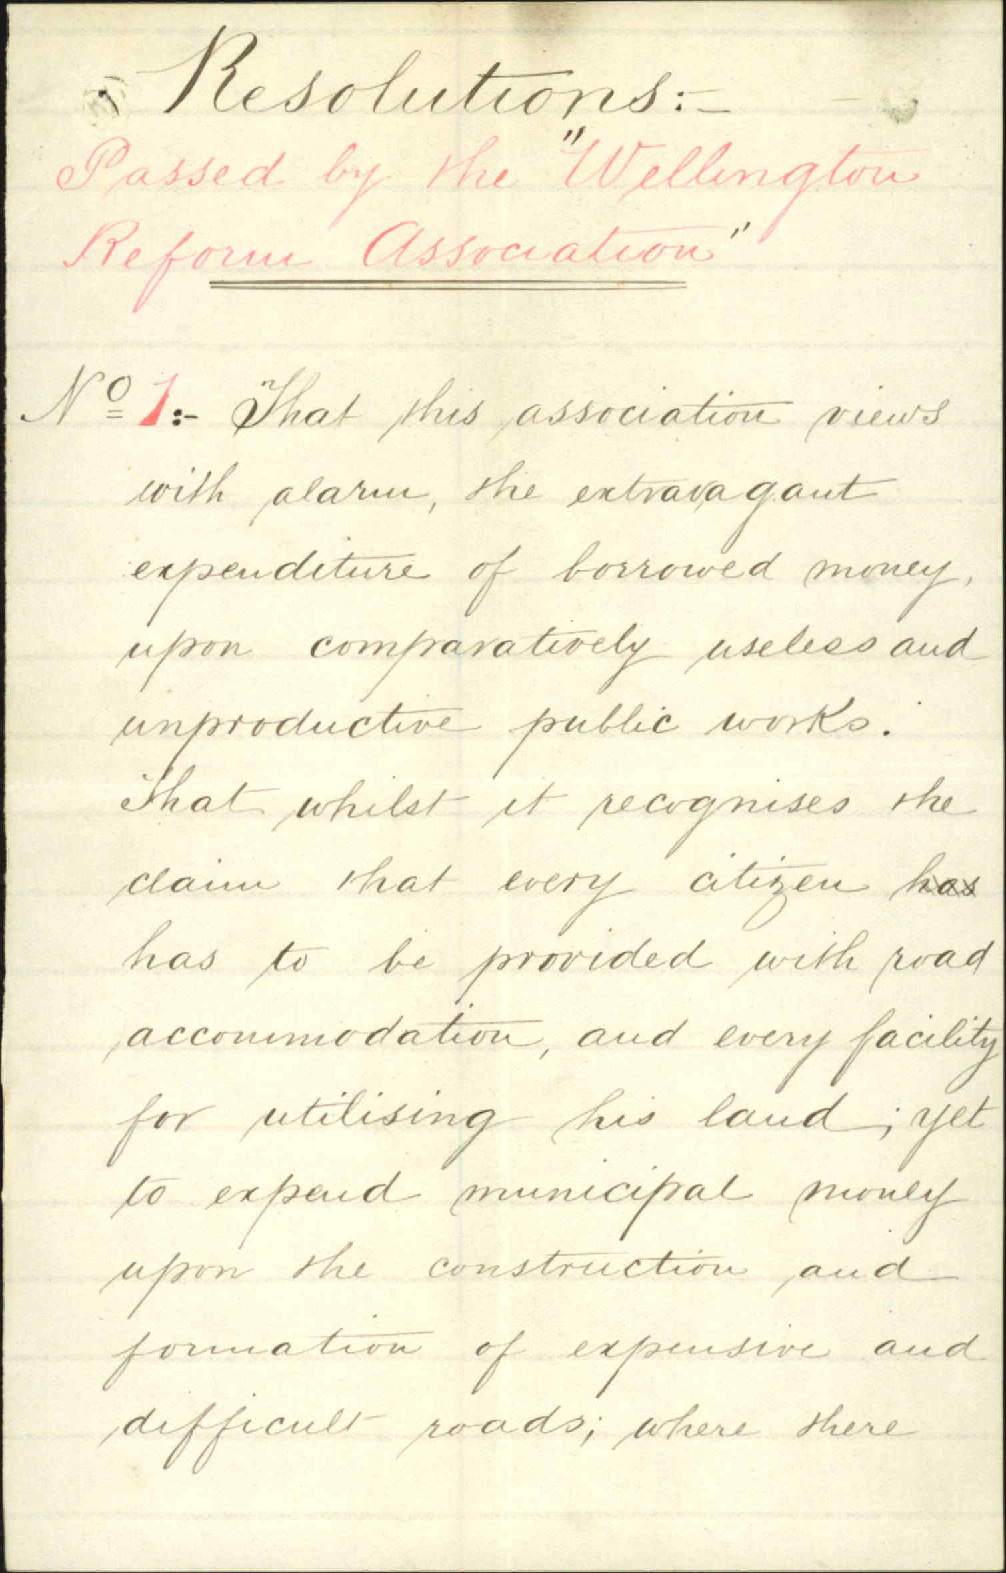 Resolutions:-
Passed by the "Wellington
Reform Association"
Nº 1:- That this association views
with alarm, the extravagant
expenditure of borrowed money,
upon comparatively useless and
unproductive public works.
That whilst it recognises the
claim that every citizen has
has to be provided with road
accommodation, and every facility
for utilising his land; yet
to expend municipal money
upon the construction and
formation of expensive and
difficult roads; where there